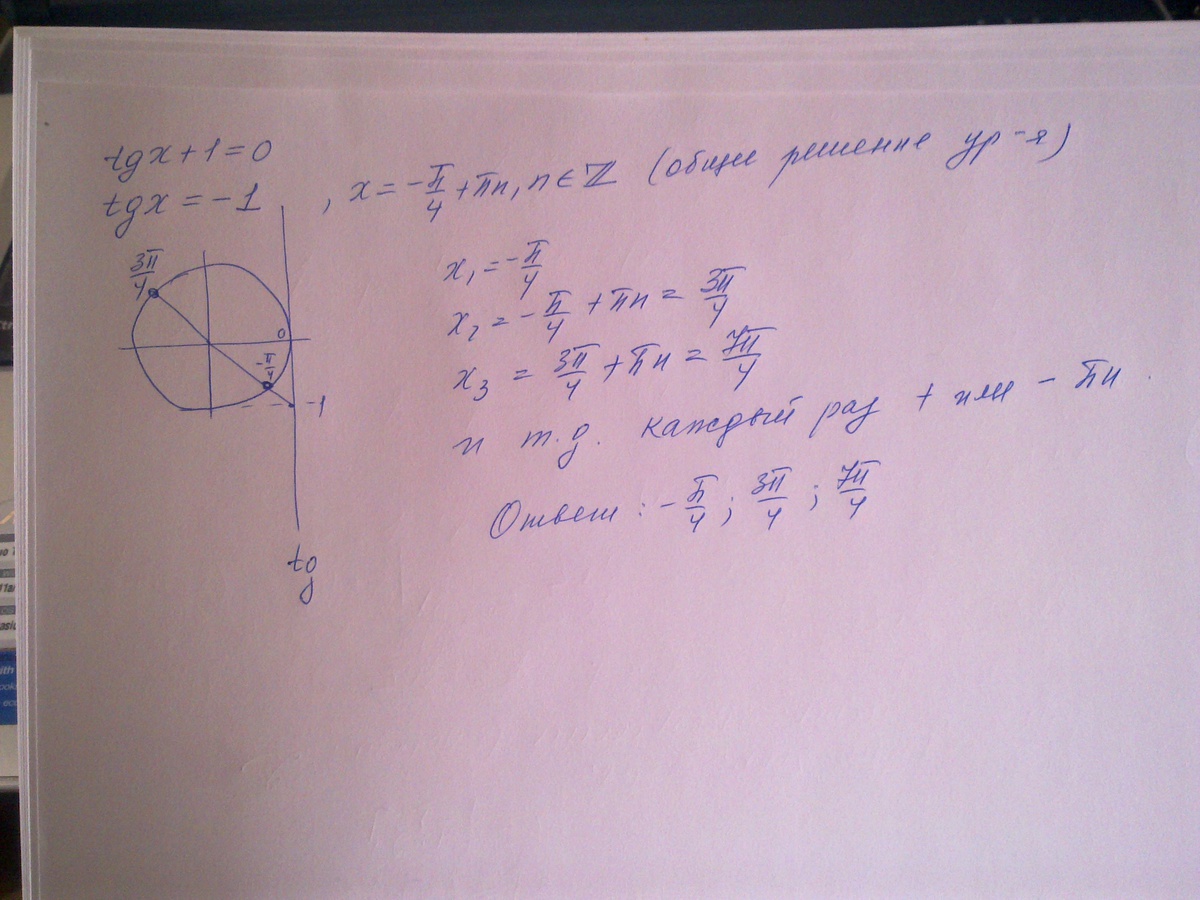 tgx+1=0
tgx = -1 , x = -π/4 + πn, n ∈ ℤ (общее решение ур-я)
3π/4
0
-π/4
-1
tg
x₁ = -π/4
x₂ = -π/4 + πn = 3π/4
x₃ = 3π/4 + πn = 7π/4
и т.д. каждый раз + или - πn.
Ответ: -π/4; 3π/4; 7π/4